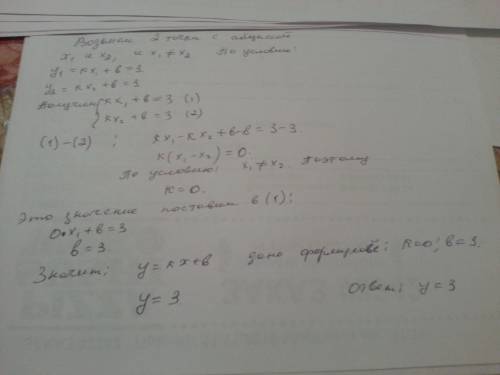 Возьмем 2 точки с абциссой
x₁ и x₂, и x₁ ≠ x₂ По условию:
y₁ = kx₁ + b = 3
y₂ = kx₂ + b = 3
Получим { kx₁ + b = 3 (1)
kx₂ + b = 3 (2)
(1) - (2) ; kx₁ - kx₂ + b - b = 3 - 3.
k(x₁ - x₂) = 0.
По условию: x₁ ≠ x₂. Поэтому
k = 0.
Это значение поставим в (1):
0·x₁ + b = 3
b = 3.
Значит: y = kx + b дана формулой: k = 0; b = 3.
y = 3
Ответ: y = 3